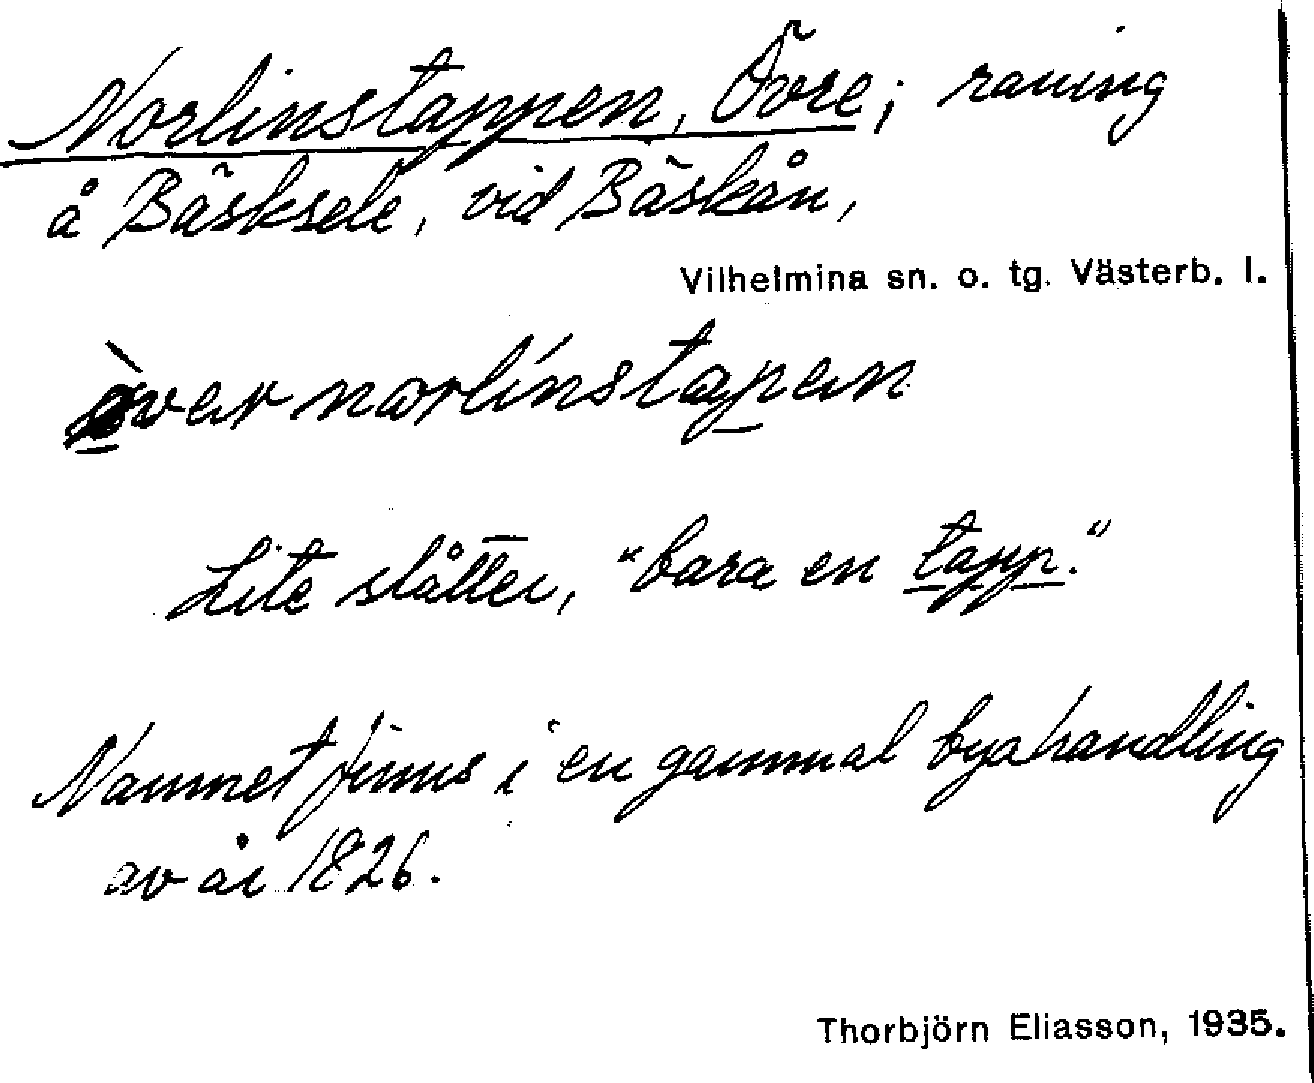 Norlinstappen, Övre; raning
å Bäsksele, vid Bäskån,
Vilhelmina sn. o. tg. Västerb. l.
norlínstapen
Lite slåtter, "bara en tapp."
Namnet finns i en gammal byahandling
av år 1826.
Thorbjörn Eliasson, 1935.